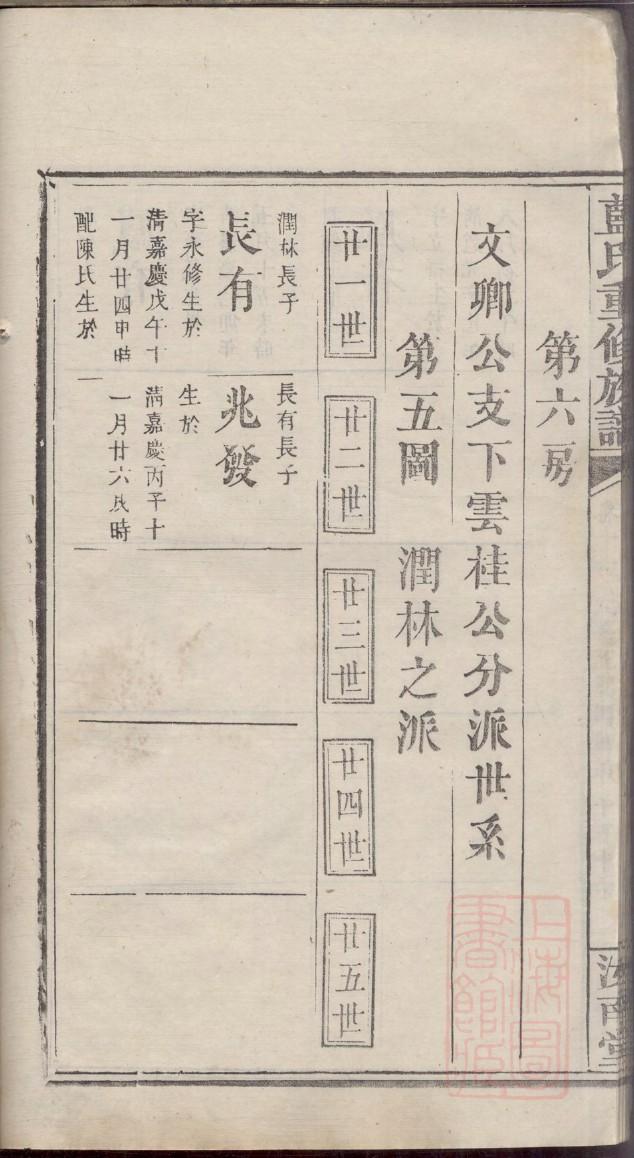 藍氏重修族譜
汝南堂
第六房
文卿公支下雲桂公分派世系
第五圖 潤林之派
廿一世
廿二世
廿三世
廿四世
廿五世
潤林長子
長有
字永修生於
清嘉慶戊午十
一月廿四申時
配陳氏生於
長有長子
兆發
生於
清嘉慶丙子十
一月廿六戌時
上海圖書館藏